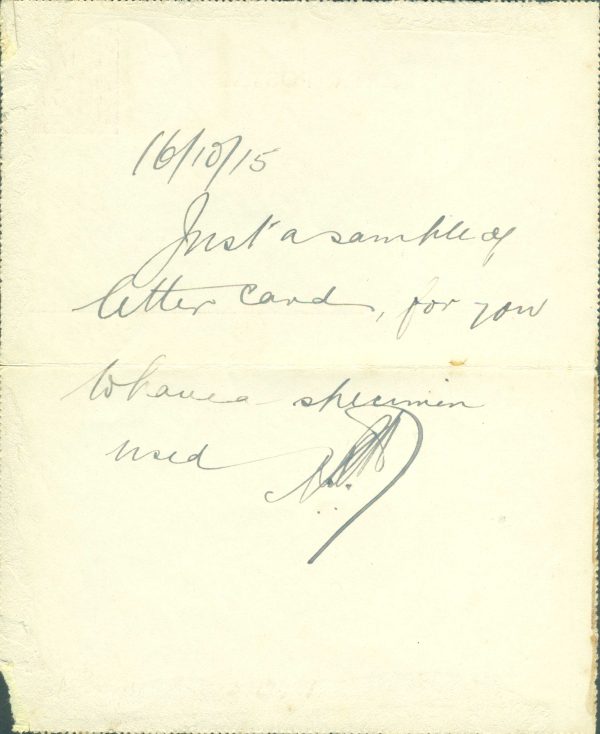 16/10/15
Just a sample of
letter card, for you
to have a specimen
used